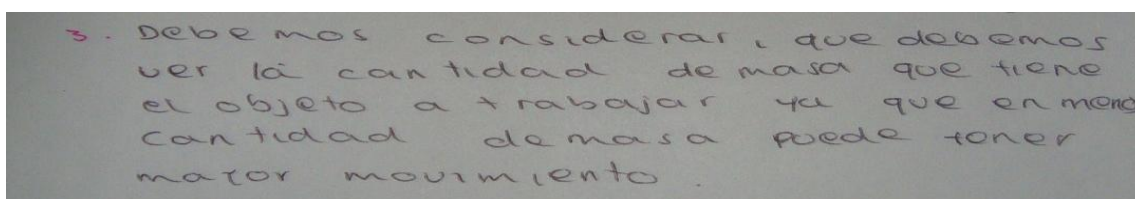 3. Debemos considerar, que debemos
ver la cantidad de masa que tiene
el objeto a trabajar ya que en meno
cantidad de masa puede tener
mayor movimiento.